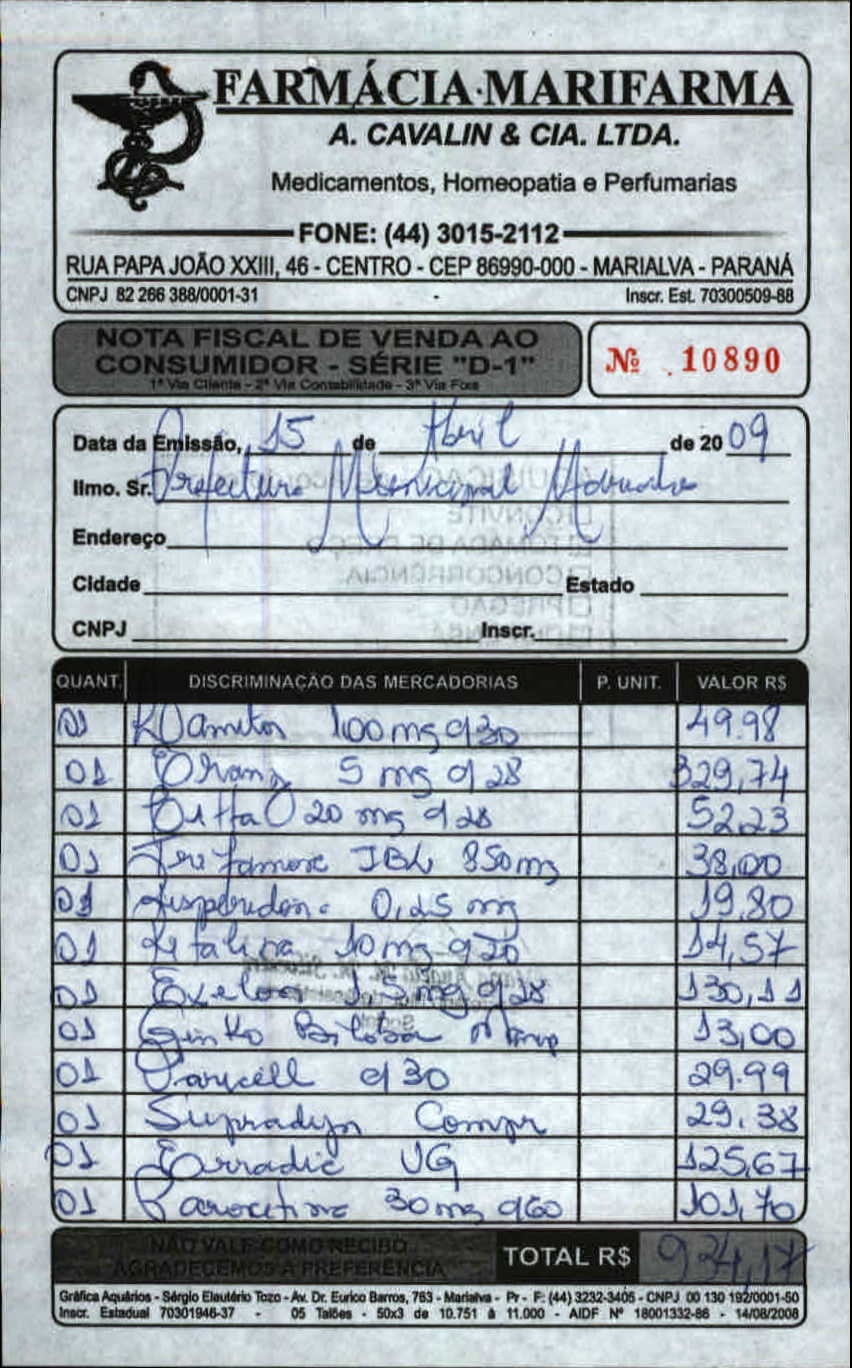 FARMÁCIA·MARIFARMA
A. CAVALIN & CIA. LTDA.
Medicamentos, Homeopatia e Perfumarias
FONE: (44) 3015-2112
RUA PAPA JOÃO XXIII, 46 - CENTRO - CEP 86990-000 - MARIALVA - PARANÁ
CNPJ 82 266 388/0001-31 Inscr. Est. 70300509-88
NOTA FISCAL DE VENDA AO
CONSUMIDOR - SÉRIE "D-1"
1ª Via Cliente - 2ª Via Contabilidade - 3ª Via Fixa
Nº 10890
Data da Emissão, 15 de Abril de 2009
Ilmo. Sr. Prefeitura Municipal
Endereço
Cidade Estado
CNPJ Inscr.
QUANT. DISCRIMINAÇÃO DAS MERCADORIAS P. UNIT. VALOR R$
01 100 mg c/30 49.98
01 5 mg c/28 329,74
01 20 mg c/28 52,23
01 850 mg 38,00
01 0,25 mg 19,80
01 Ritalina 10 mg c/20 14,57
01 Exelon 1,5 mg c/28 130,11
01 Ginko Biloba 13,00
01 c/30 29.99
01 Supradyn Compr 29.38
01 UG 125,67
01 Paroxetina 30 mg c/60 101,70
NÃO VALE COMO RECIBO
AGRADECEMOS A PREFERÊNCIA
TOTAL R$ 934,17
Gráfica Aquários - Sérgio Elautério Tozo - Av. Dr. Eurico Barros, 763 - Marialva - Pr - F: (44) 3232-3405 - CNPJ 00 130 192/0001-50
Inscr. Estadual 70301946-37 - 05 Talões - 50x3 de 10.751 à 11.000 - AIDF Nº 18001332-86 - 14/08/2008